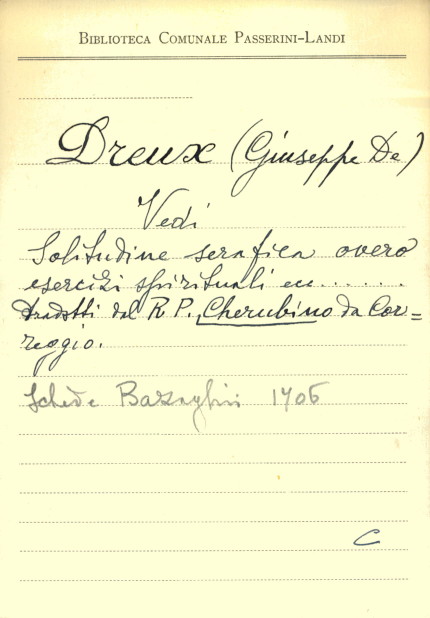 BIBLIOTECA COMUNALE PASSERINI-LANDI
Dreux (Giuseppe De)
Vedi
Solitudine serafica overo
esercizi spirituali ec......
tradotti dal R P. Cherubino da Cor=
reggio.
Schede 1706
C